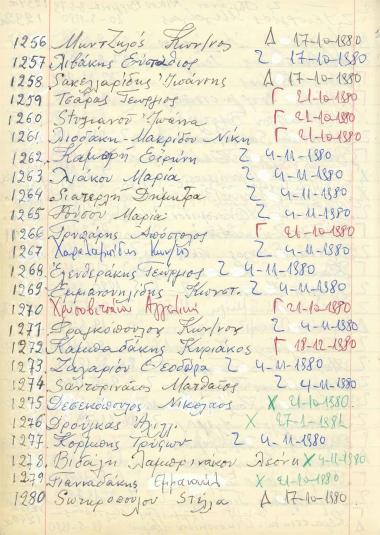 1256 Μιντζηλός Κων/νος Δ 17-10-1980
1257 Λιβάκης Ευστάθιος Ζ 17-10-1980
1258 Σακελλαρίδης Ιωάννης Δ 17-10-1980
1259 Τσάβας Γεώργιος Γ 21-10-1980
1260 Στυλιανού Ιωάννα Γ 21-10-1980
1261 Λιοδάκη-Μακρίδου Νίκη Γ 21-10-1980
1262 Ειρήνη Ζ 4-11-1980
1263 Μαρία Ζ 4-11-1980
1264 Δήμητρα Ζ 4-11-1980
1265 Ρούσου Μαρία Ζ 4-11-1980
1266 Γρυπάρης Απόστολος Γ 21-10-1980
1267 Χαραλαμπίδης Κων/νος Ζ 4-11-1980
1268 Ελευθεράκης Γεώργιος Ζ 4-11-1980
1269 Κωνστ. Ζ 4-11-1980
1270 Αγγελική Γ 21-10-1980
1271 Φραγκόπουλος Κων/νος Ζ 4-11-1980
1272 Καμπαδάκης Κυριάκος Γ 18-12-1980
1273 Ζαχαρίου Θεοδώρα Ζ 4-11-1980
1274 Σαντοριναίος Ματθαίος Ζ 4-11-1980
1275 Δεσεκόπουλος Νικόλαος Χ 21-10-1980
1276 Δρούγκας Χ 27-1-1981
1277 Κορμπής Τρύφων Ζ 4-11-1980
1278 Βιδάλη Λαμπρινάκου Λεόνη Χ 4-11-1980
1279 Γιανναδάκης Εμμανουήλ Χ 21-10-1980
1280 Σωτηροπούλου Στέλλα Δ 17-10-1980